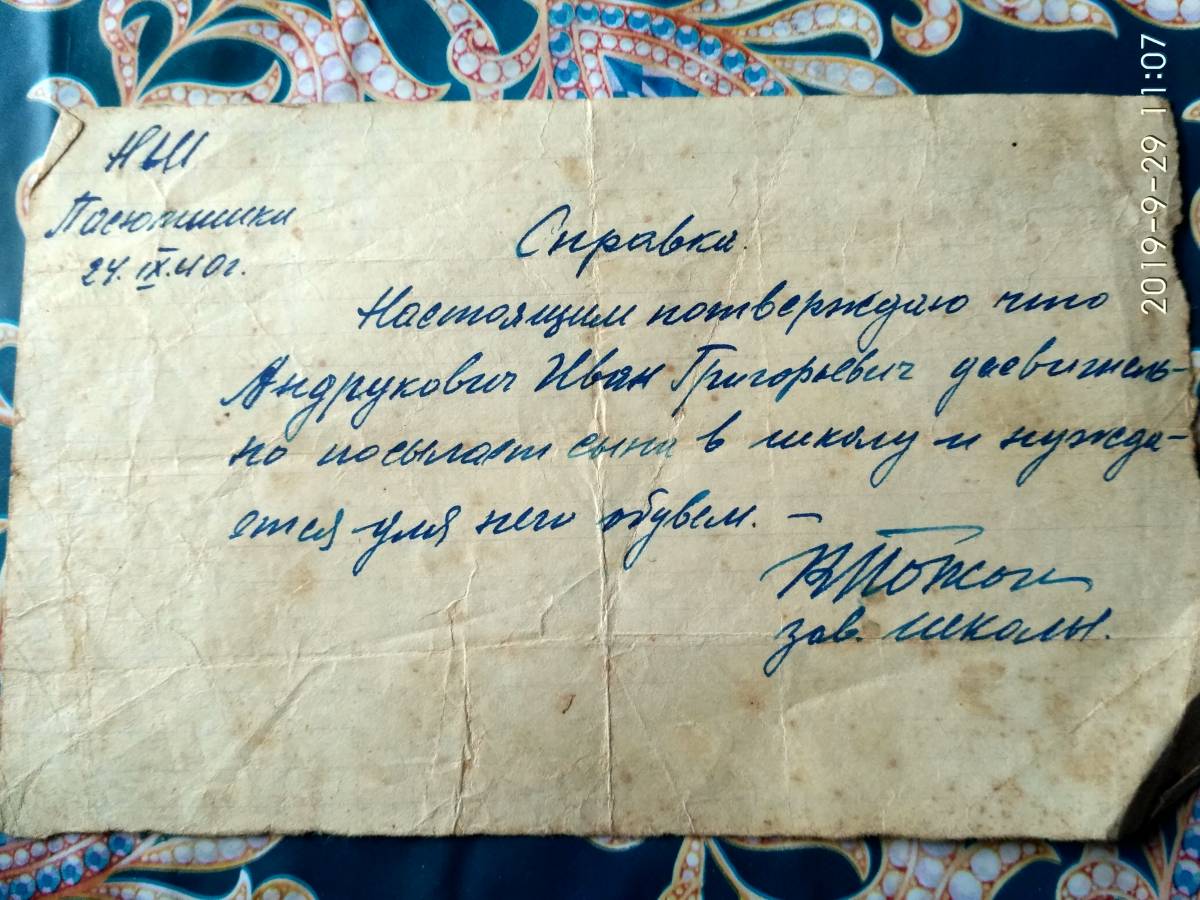 НШ
Пасютишки
24. IX. 40г.
Справка.
Настоящим потверждаю что
Андрукович Иван Григорьевич действитель-
но посылает сына в школу и нужда-
ется для него обувем. –
зав. школы.
2019-9-29 11:07